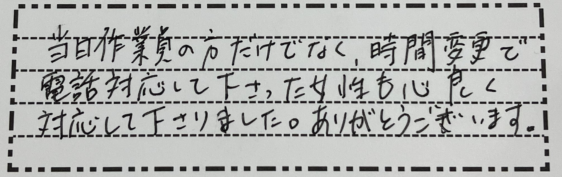 当日作業員の方だけでなく、時間変更で
電話対応して下さった女性も心良く
対応して下さりました。ありがとうございます。